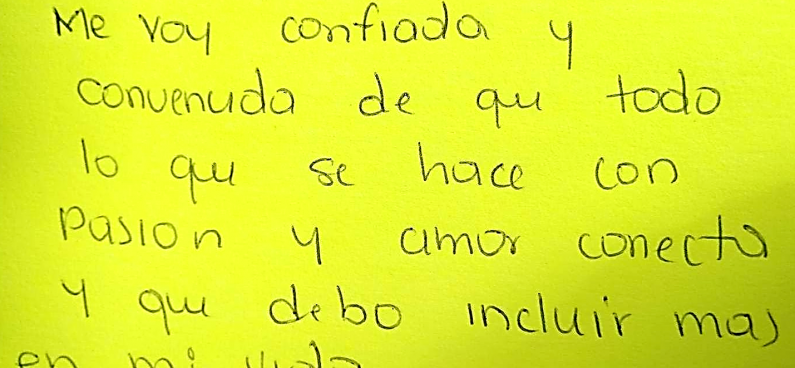 Me voy confiada y
convencida de que todo
lo que se hace con
pasion y amor conecta
y que debo incluir mas
en mi vida